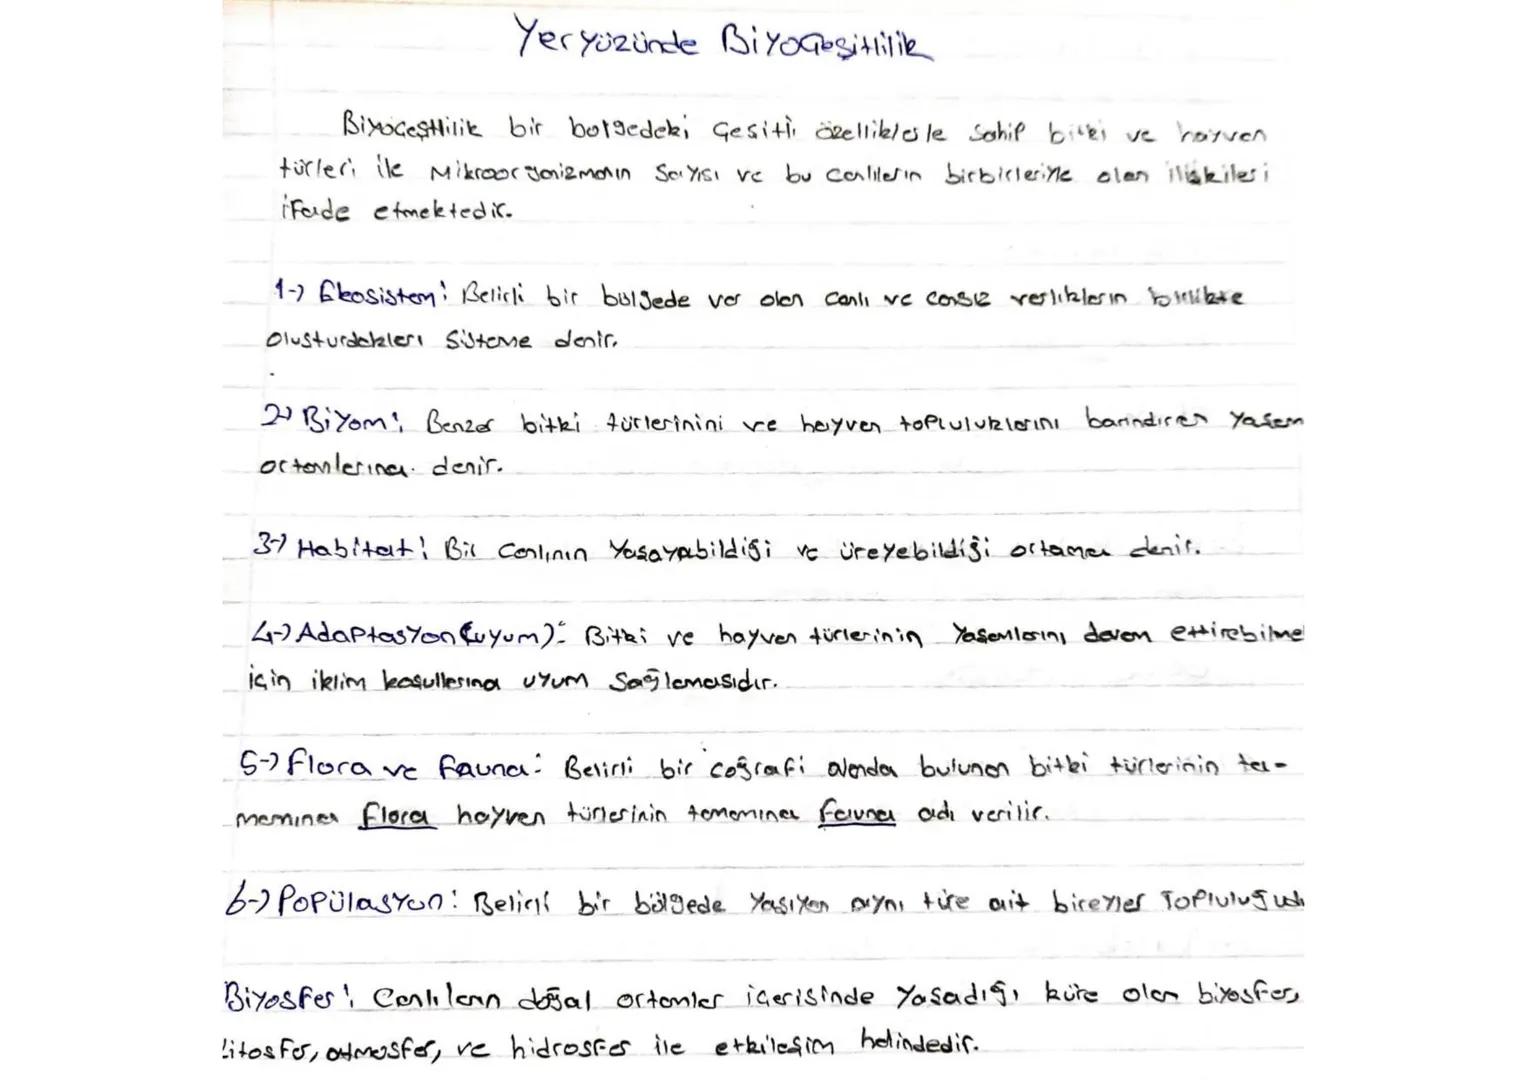 Yeryüzünde Biyoçeşitlilik
Biyoçeşitlilik bir bölgedeki çeşitli özelliklerle sahip bitki ve hayvan
türleri ile Mikroorganizmanın sayısı ve bu canlıların birbirleriyle olan ilişkileri
ifade etmektedir.
1-) Ekosistem: Belirli bir bölgede var olan canlı ve cansız varlıkların birlikte
oluşturdukları sisteme denir.
2-) Biyom: Benzer bitki türlerinini ve hayvan topluluklarını barındıran yaşam
ortamlarına denir.
3-) Habitat: Bir canlının yaşayabildiği ve üreyebildiği ortama denir.
4-) Adaptasyon (uyum): Bitki ve hayvan türlerinin yaşamlarını devam ettirebilme
için iklim koşullarına uyum sağlamasıdır.
5-) flora ve fauna: Belirli bir coğrafi alanda bulunan bitki türlerinin ta-
mamına flora hayvan türlerinin tamamına fauna adı verilir.
6-) Popülasyon: Belirli bir bölgede yaşayan aynı türe ait bireyler Topluluğudu
Biyosfer: Canlıların doğal ortamlar içerisinde yaşadığı küre olan biyosfer,
litosfer, atmosfer, ve hidrosfer ile etkileşim halindedir.